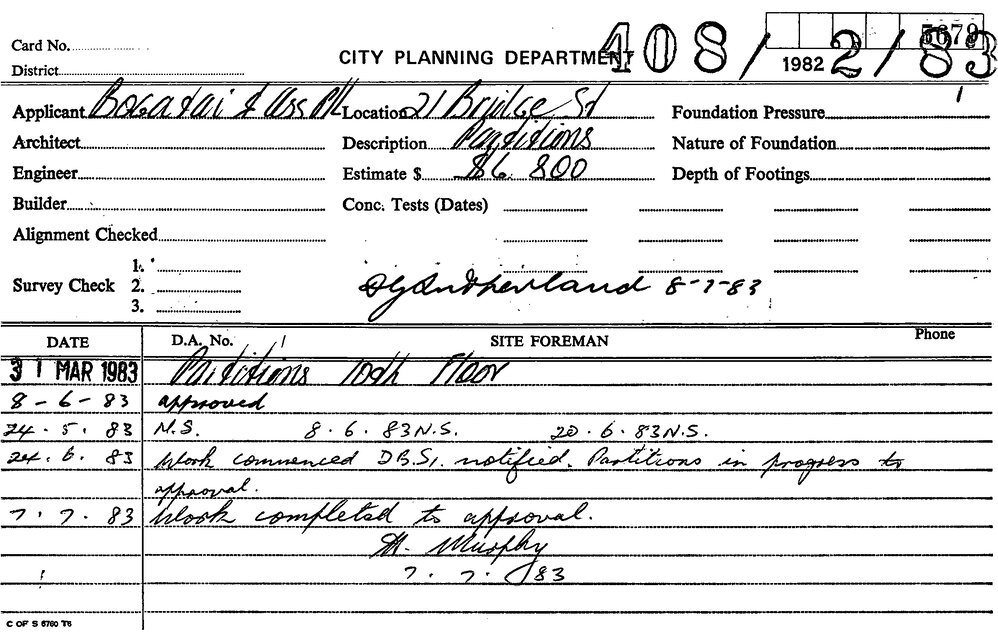 5679
Card No.
CITY PLANNING DEPARTMENT 408/ 1982 2/83
District
Applicant Bogatai & Ass P/L Location 21 Bridge St Foundation Pressure
Architect Description Partitions Nature of Foundation
Engineer Estimate $ $6 800 Depth of Footings
Builder Conc. Tests (Dates)
Alignment Checked
1.
Survey Check 2. Sutherland 8-7-83
3.
DATE D.A. No. SITE FOREMAN Phone
31 MAR 1983 Partitions 10th Floor
8-6-83 approved
24.5.83 N.S. 8.6.83 N.S. 20.6.83 N.S.
24.6.83 Work commenced D.B.S. notified. Partitions in progress to
approval.
7.7.83 Work completed to approval.
M. Murphy
7.7.83
C OF S 6760 T6